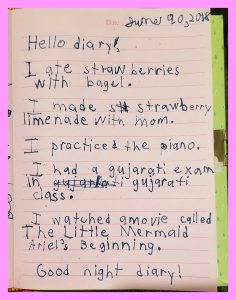 Date: June 20, 2018
Hello diary!
I ate strawberries
with bagel.
I made strawberry
limenade with mom.
I practiced the piano.
I had a gujarati exam
in gujarati
class.
I watched amovie called
The Little Mermaid
Ariel's Beginning.
Good night diary!